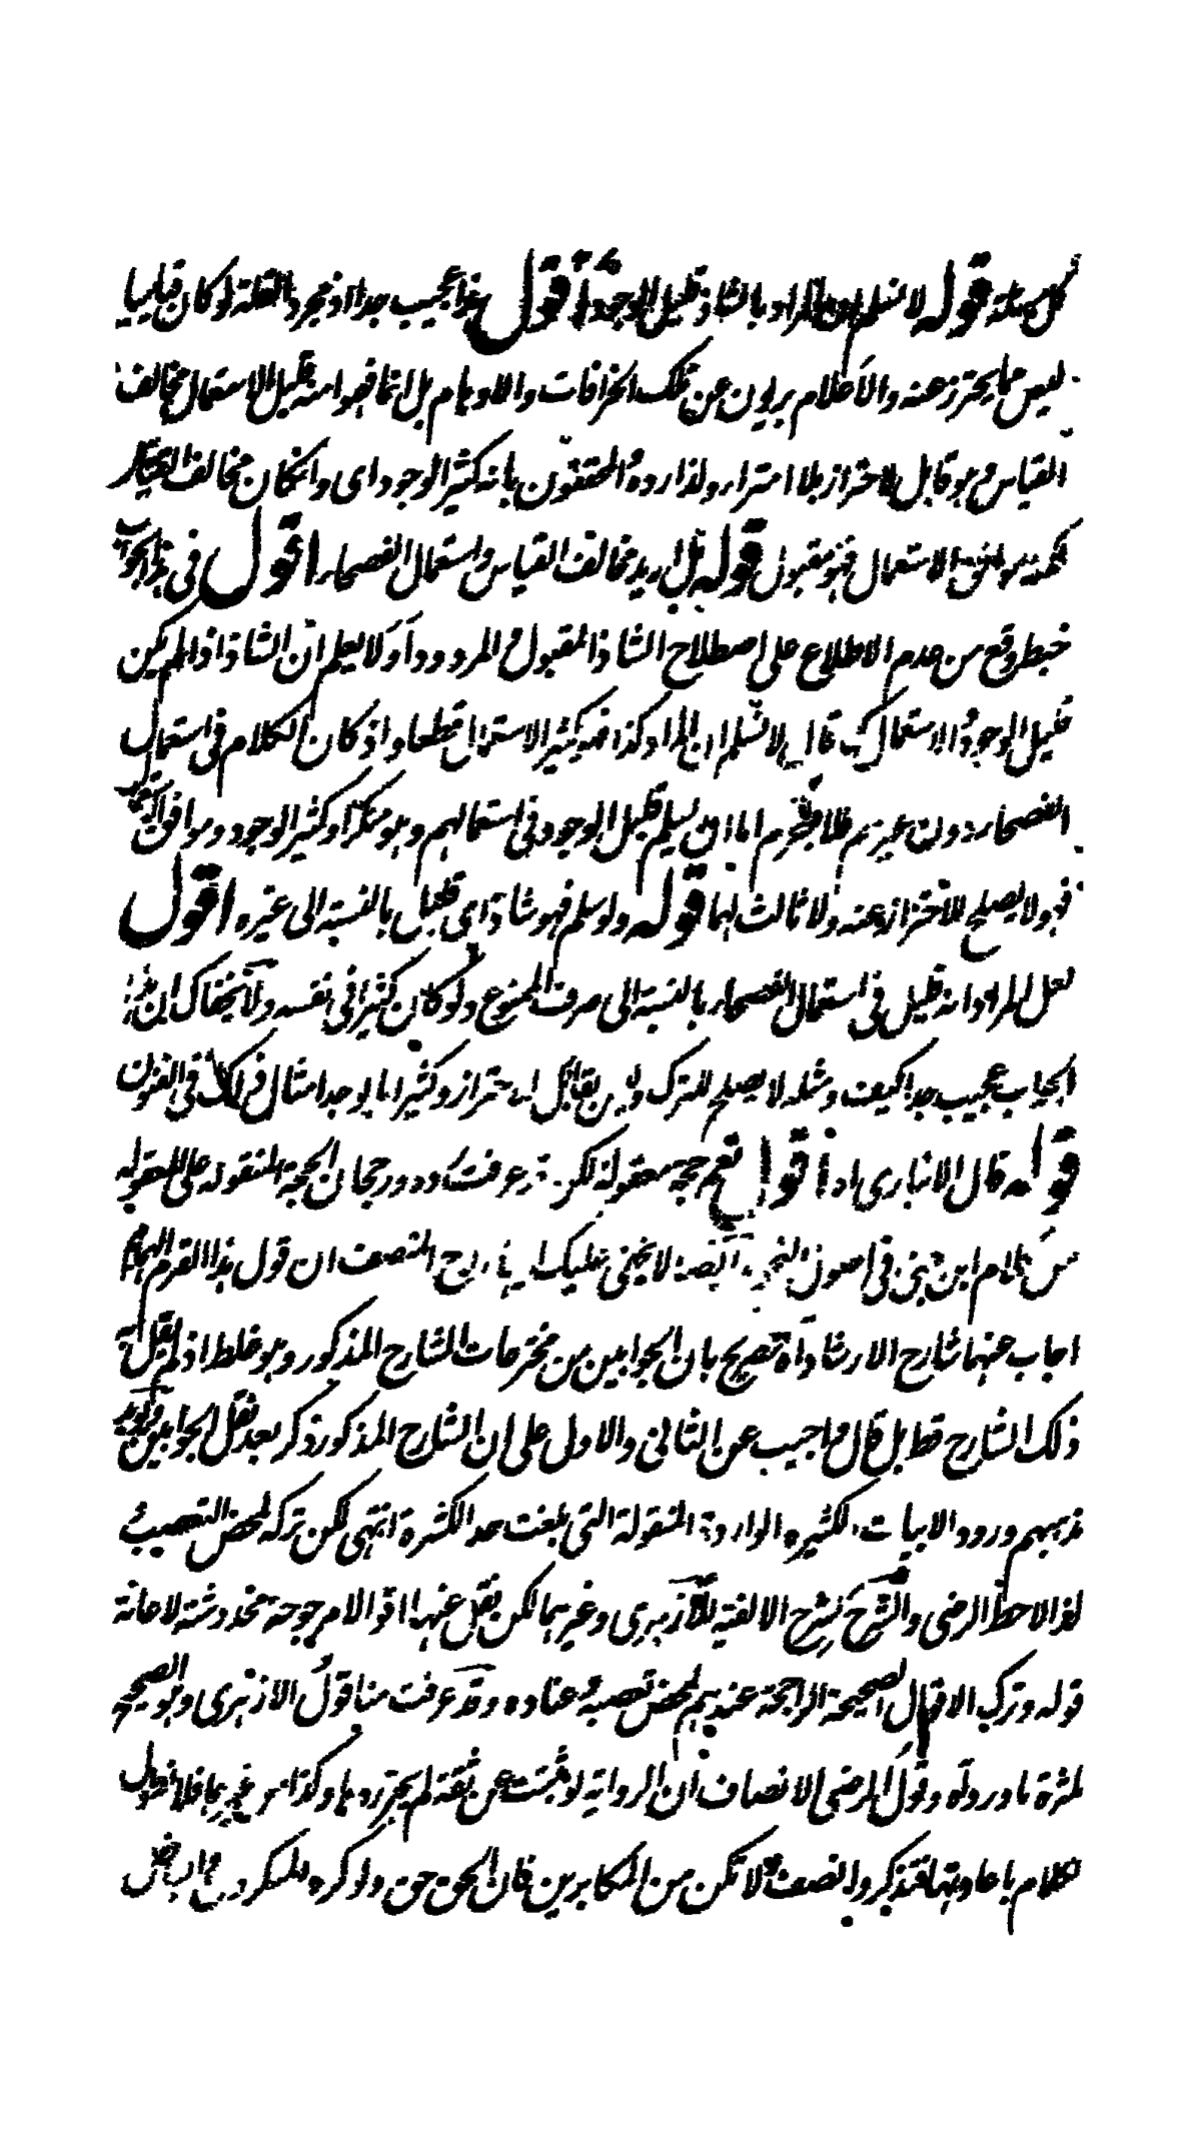 قوله لا نسلم ان المراد بالشاذ قليل الوجود اقول هذا عجيب جدا اذ مجرد القلة لو كان قياسيا
ليس مما يحترز عنه والاعلام بريئون عن تلك الخرافات والاوهام بل انما قليل الاستعمال مخالف
القياس هو قابل للاحتراز بلا امتراء ولذا رده المحققون بانه كثير الوجود اى وان كان مخالف القياس
لكنه موافق الاستعمال فهو مقبول قوله بل اريد مخالف القياس واستعمال الفصحاء اقول فى هذا الجواب
خبط وقع من عدم الاطلاع على اصطلاح الشاذ المقبول والمردود او لا يعلم ان الشاذ اذا لم يكن
قليل الوجود الاستعمال كيف قال لا نسلم ان المراد كذا فهو كثير الاستعمال قطعا واذ كان الكلام فى استعمال
الفصحاء دون غيرهم فلا اما ان يسلم قليل الوجود فى استعمالهم وهو منكر او كثير الوجود وموافق
فهو لا يصلح للاحتراز عنه ولا ثالث لهما قوله ولو سلم فهو شاذ اى قليل بالنسبة الى غيره اقول
لعل المراد انه قليل فى استعمال الفصحاء بالنسبة الى صرف الممنوع ولو كان كثيرا فى نفسه ولا يخفاك ان هذا
الجواب عجيب جدا كيف ومثله لا يصلح للترك ولا يقابل الاحتراز وكثيرا ما يوجد امثال فى الفنون
قوله قال الانبارى اه اقول نعم حجة معقولة لكن قد عرفت رده ورجحان الحجة المنقولة على المعقولة
من كلام ابن جنى فى اصول النحو ايضا لا يخفى عليك ايها المنصف ان قول هذا القرم الهمام
اجاب عنهما شارح الارشاد اه تصريح بان الجوابين من مخترعات الشارح المذكور وهو غلط اذ لم يقل
ذلك الشارح قط بل قال واجيب عن الثانى والاول على ان الشارح المذكور ذكر بعد نقل الجوابين
مذهبهم ورود الابيات الكثيرة الواردة المنقولة التى بلغت حد الكثرة انتهى لكن تركه لمحض التعصب
لذا لاحظ الرضى والشرح لشرح الالفية للازهرى وغيرهما لكن نقل عنها اقوالا مرجوحة مخدوشة لاعانة
قوله وترك الاقوال الصحيحة الراجحة عندهم لمحض تعصبه وعناده وقد عرفت منا قول الازهرى وهو الصحيح
لكثرة ما ورد اه وقول الرضى الانصاف ان الرواية لو ثبتت عن ثقة لم يجز ردها وكذا من غيرها فلا نطول
الكلام باعادتها فتذكر وانصف ولا تكن من المكابرين فان الحق حق ولو كره المنكر